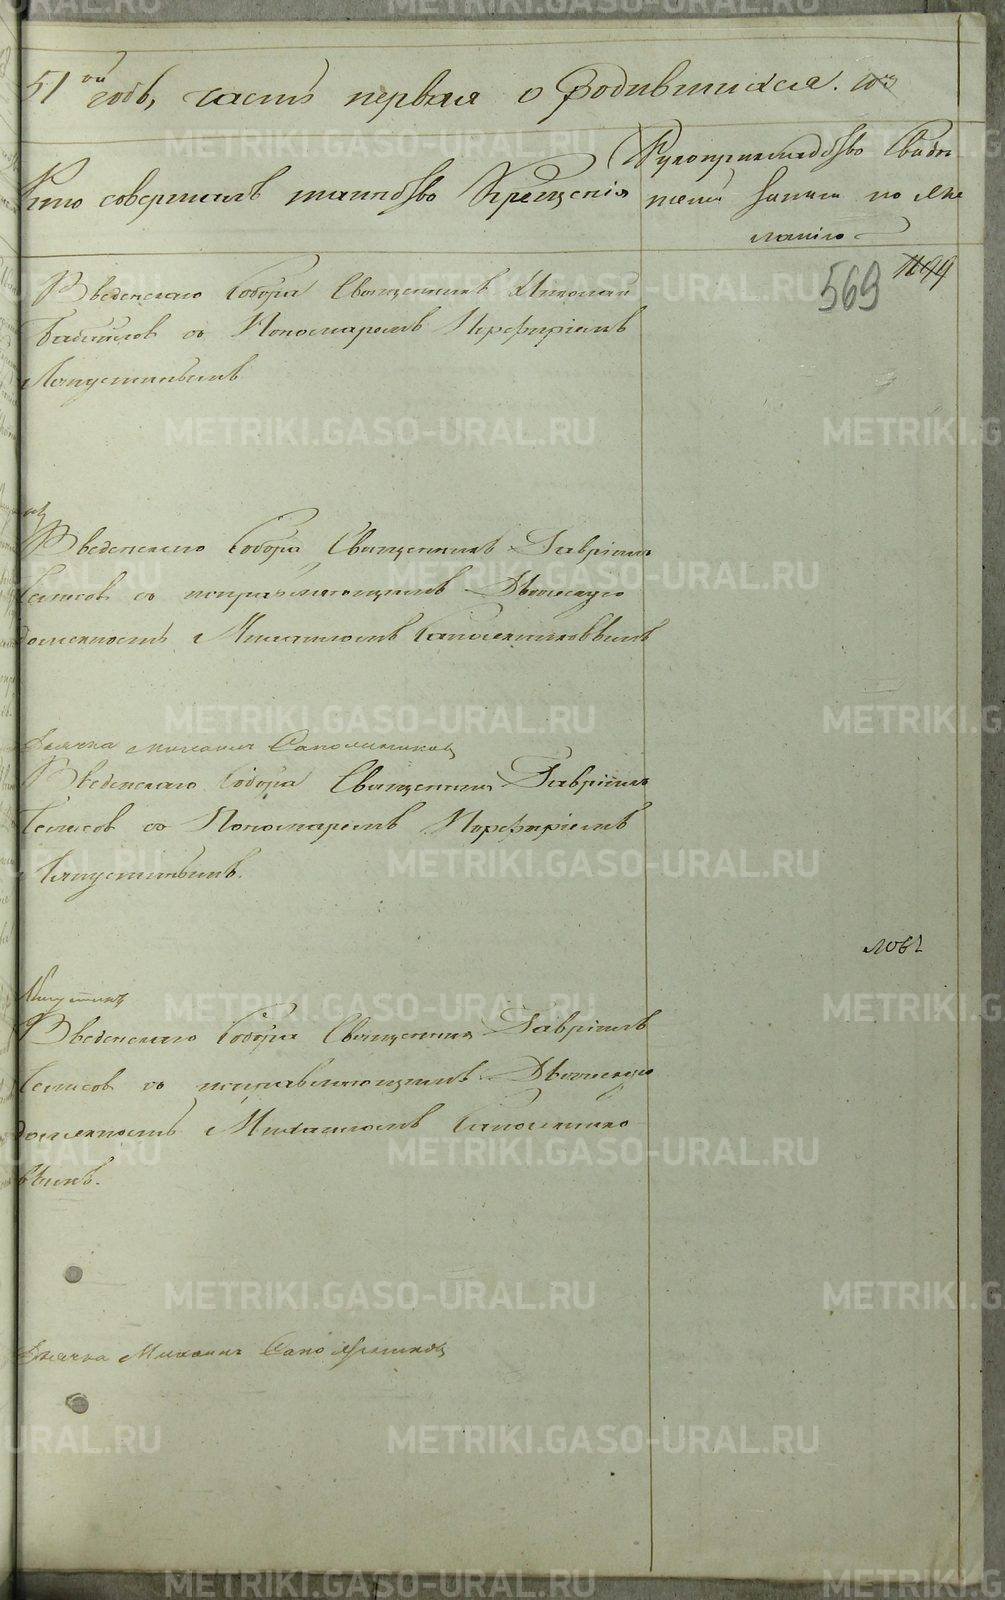 51 ой годъ, часть первая о родившихся.
Кто совершалъ таинство Крещенія
Рукоприкладство свидѣ
телей записи по же
ланію
569
Введенскаго Собора Священникъ Николай
съ Пономаремъ Порфиріемъ
Капустинымъ
Введенскаго Собора Священникъ Гавріилъ
съ исправляющимъ Дьяческую
должность Михаиломъ Сапожниковымъ
Дьячка Михаилъ Сапожниковъ
Введенскаго Собора Священникъ Гавріилъ
съ Пономаремъ Порфиріемъ
Капустинымъ.
ловъ
Капустинъ
Введенскаго Собора Священникъ Гавріилъ
съ исправляющимъ Дьяческую
должность Михаиломъ Сапожнико
вымъ.
Дьячка Михаилъ Сапожниковъ
METRIKI.GASO-URAL.RU